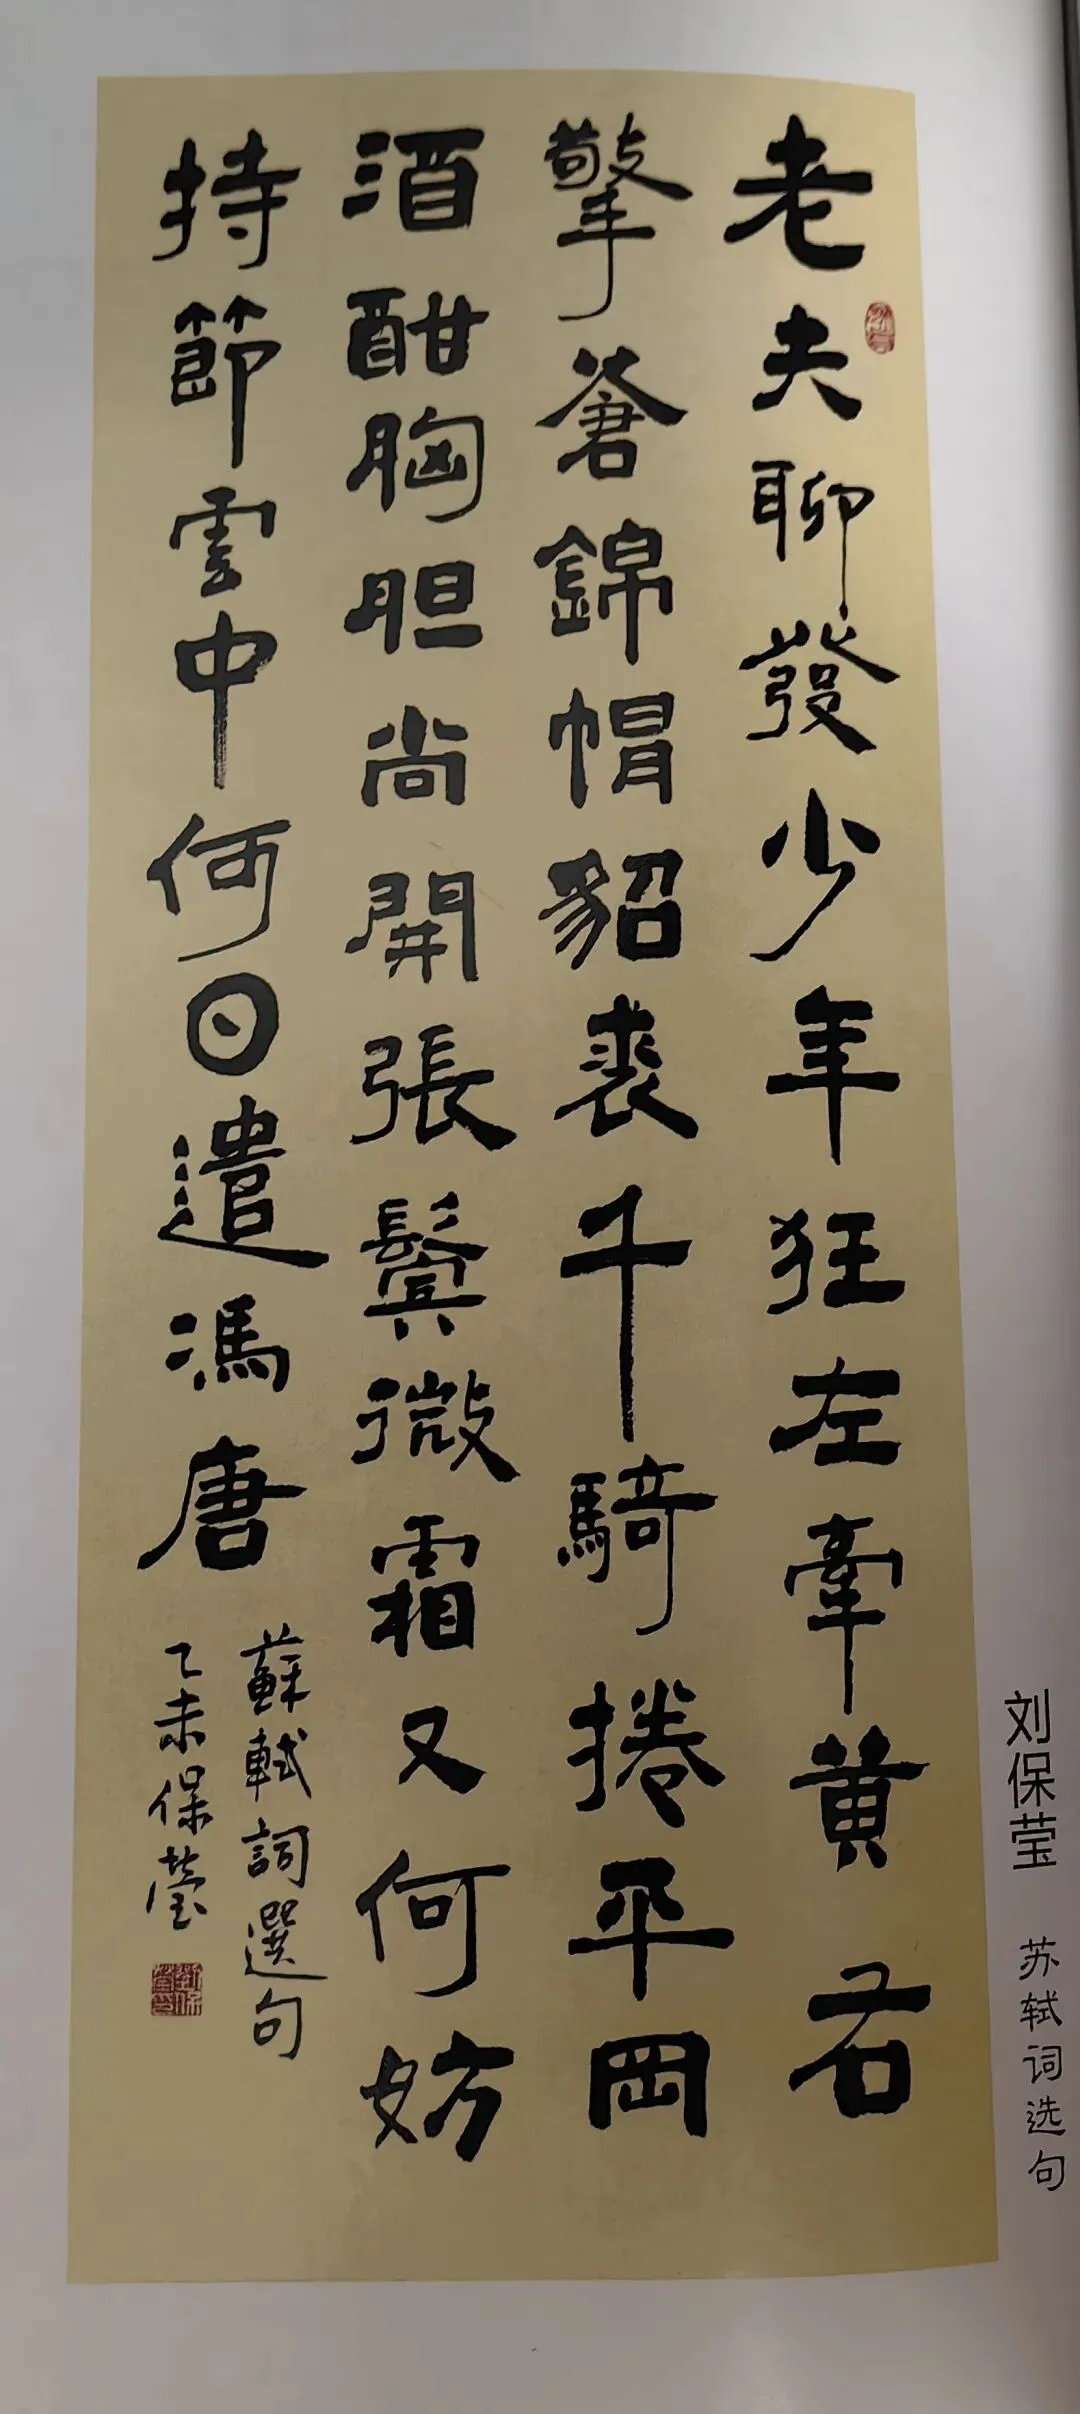 老夫聊發少年狂左牽黄右
擎蒼錦帽貂裘千騎捲平岡
酒酣胸胆尚開張鬢微霜又何妨
持節雲中何日遣馮唐
蘇軾詞選句
乙未保瑩
刘保莹
苏轼词选句